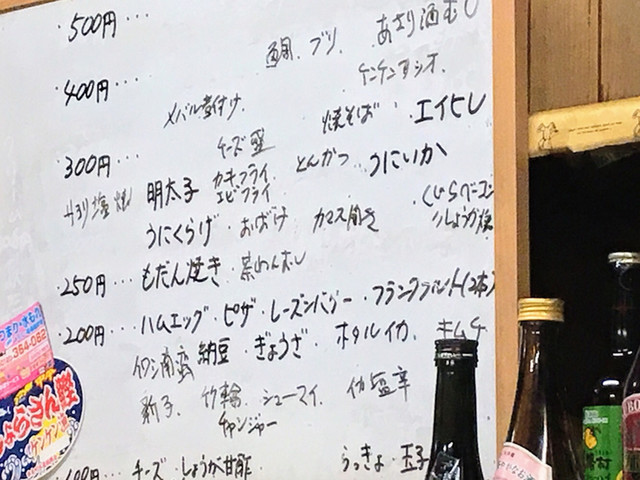 ・500円・・・
鯛. ブリ. あさり酒むし
ケンケンカツオ.
・400円・・・
メバル煮付け. 焼そば ・エイヒレ
・300円・・・ チーズ
カキフライ
とんかつ うにいか
塩焼 明太子 エビフライ
・くじらベーコン
うにくらげ・おばけ カマス開き
しょうが焼
・250円・・・もだん焼き・茶わんむし
・200円・・・ハムエッグ・ピザ・レーズンバター・フランクフルト(2本)
イワシ南蛮 納豆・ぎょうざ・ホタルイカ. キムチ
竹輪. シューマイ.
チャンジャー
100円・・・チーズ・しょうが甘酢 らっきょ・玉子
384-082
ょらさん鰹
ケンケン